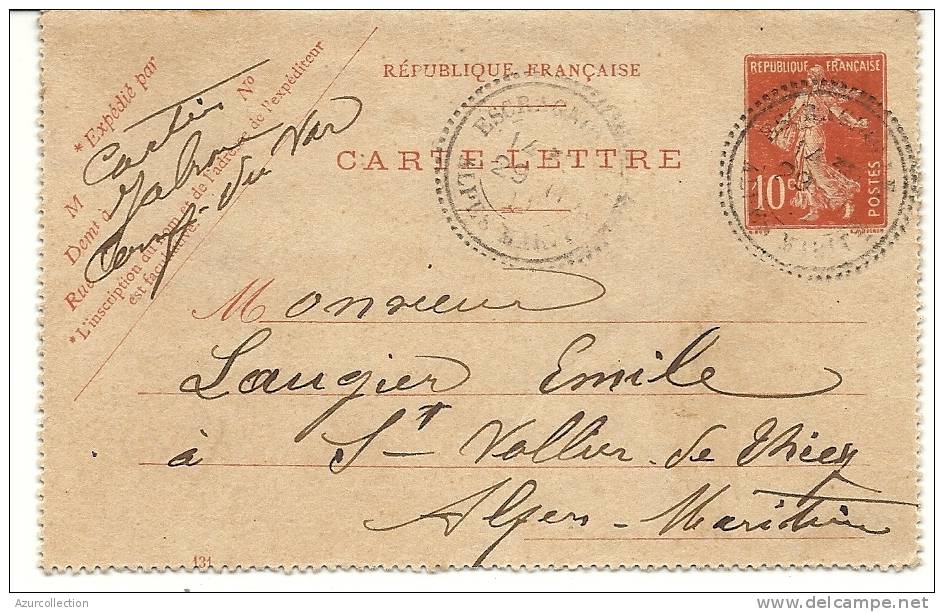 * Expédié par
M Cartier
Demt à
Rue
No
*L'inscription du nom et de l'adresse de l'expéditeur
est facultative
du Var
RÉPUBLIQUE FRANÇAISE
CARTE-LETTRE
RÉPUBLIQUE FRANÇAISE
10 c.
POSTES
Monsieur
Laugier Emile
à St Vallier de Thiey
Alpes-Maritimes
131
Azurcollection
delcampe.net